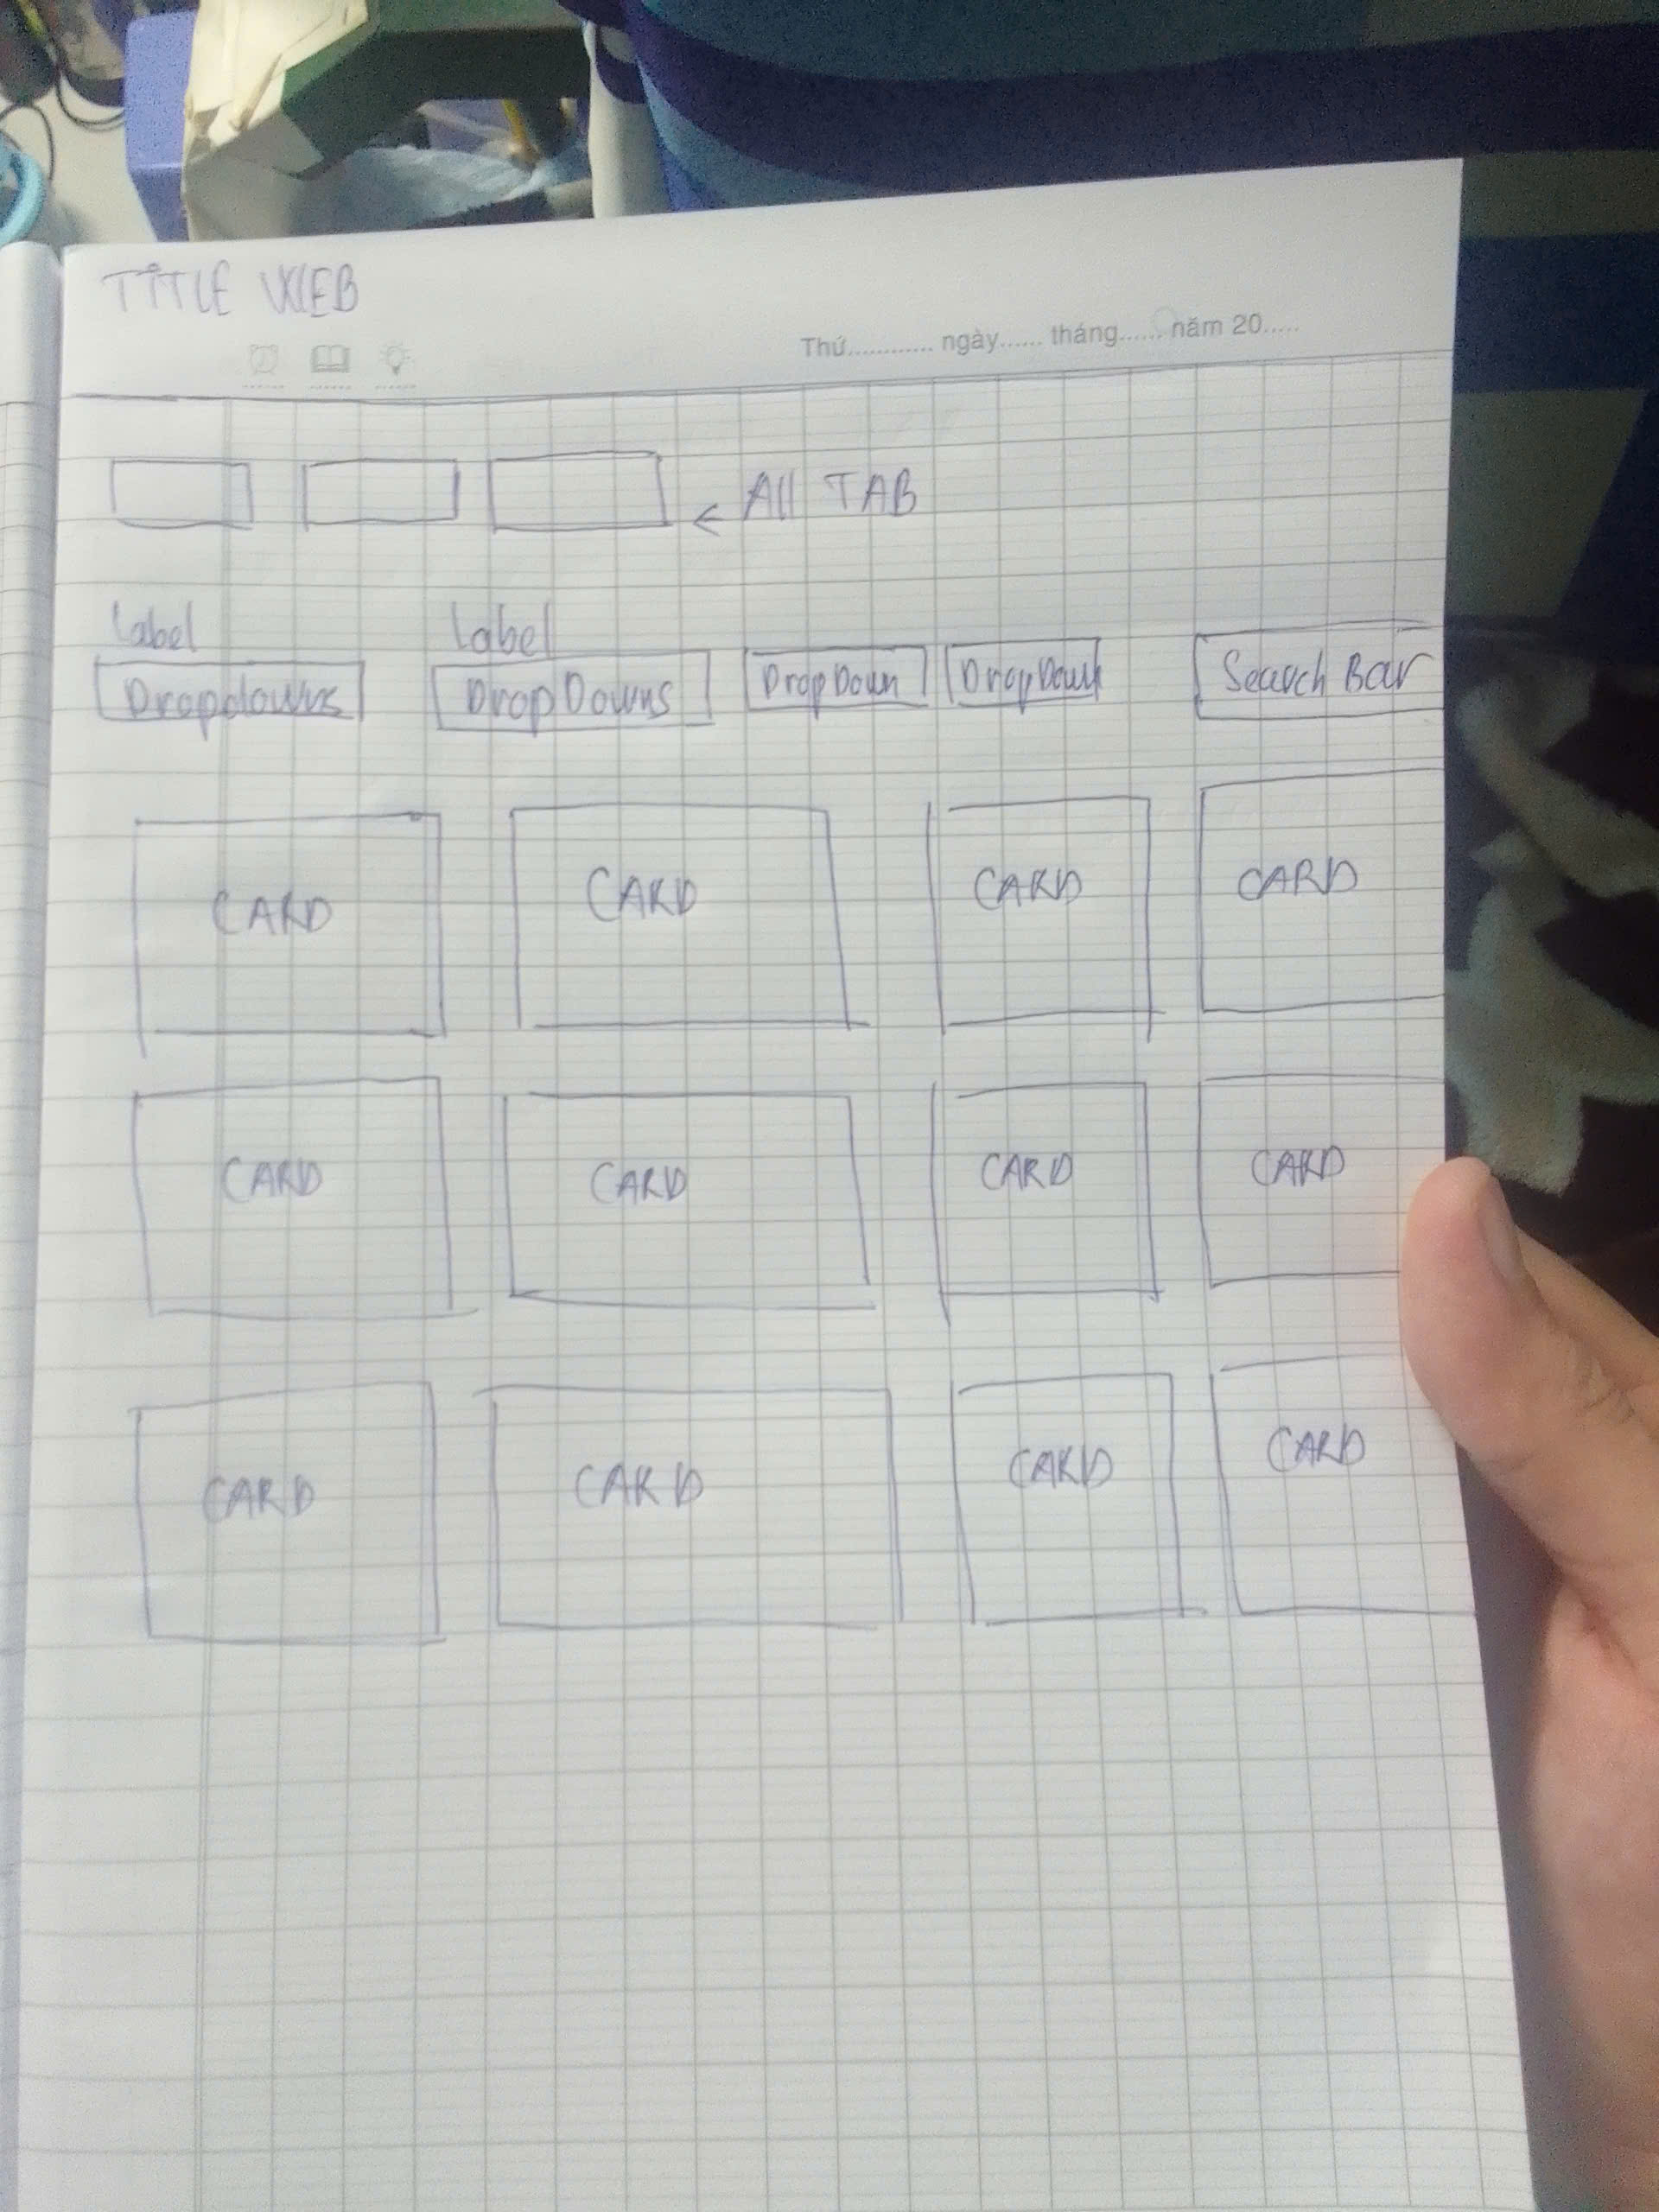 TITLE WEB
Thứ............ ngày...... tháng...... năm 20.....
← All TAB
Label Label
Dropdowns DropDowns DropDown DropDown Search Bar
CARD CARD CARD CARD
CARD CARD CARD CARD
CARD CARD CARD CARD